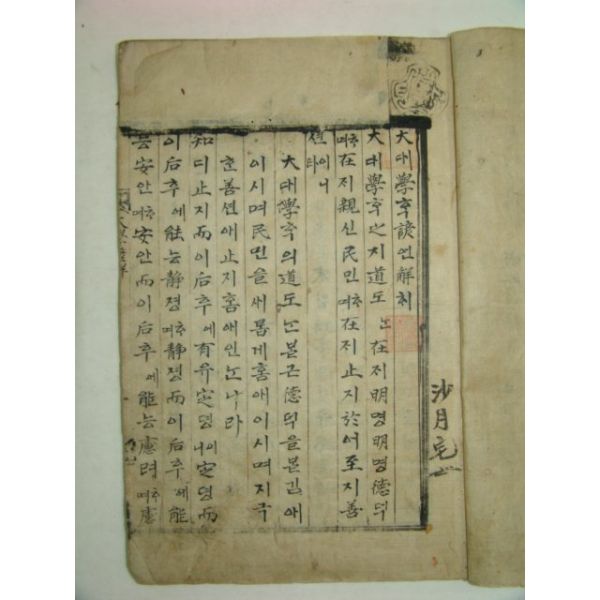 大대學ᄒᆞᆨ諺언解ᄒᆡ
大대學ᄒᆞᆨ之지道도ᄂᆞᆫ在ᄌᆡ明명明명德덕
ᄒᆞ며在ᄌᆡ親신民민ᄒᆞ며在ᄌᆡ止지於어至지善
션이니라
大대學ᄒᆞᆨ의道도ᄂᆞᆫᄇᆞᆯ근德덕을ᄇᆞᆯ김애
이시며民민을새롭게홈애이시며지극
ᄒᆞᆫ善션애止지홈애인ᄂᆞ니라
知디止지而이后후에有유定뎡이니定뎡而
이后후에能능靜졍ᄒᆞ며靜졍而이后후에能
능安안ᄒᆞ며安안而이后후에能능慮려ᄒᆞ며慮
沙月宅